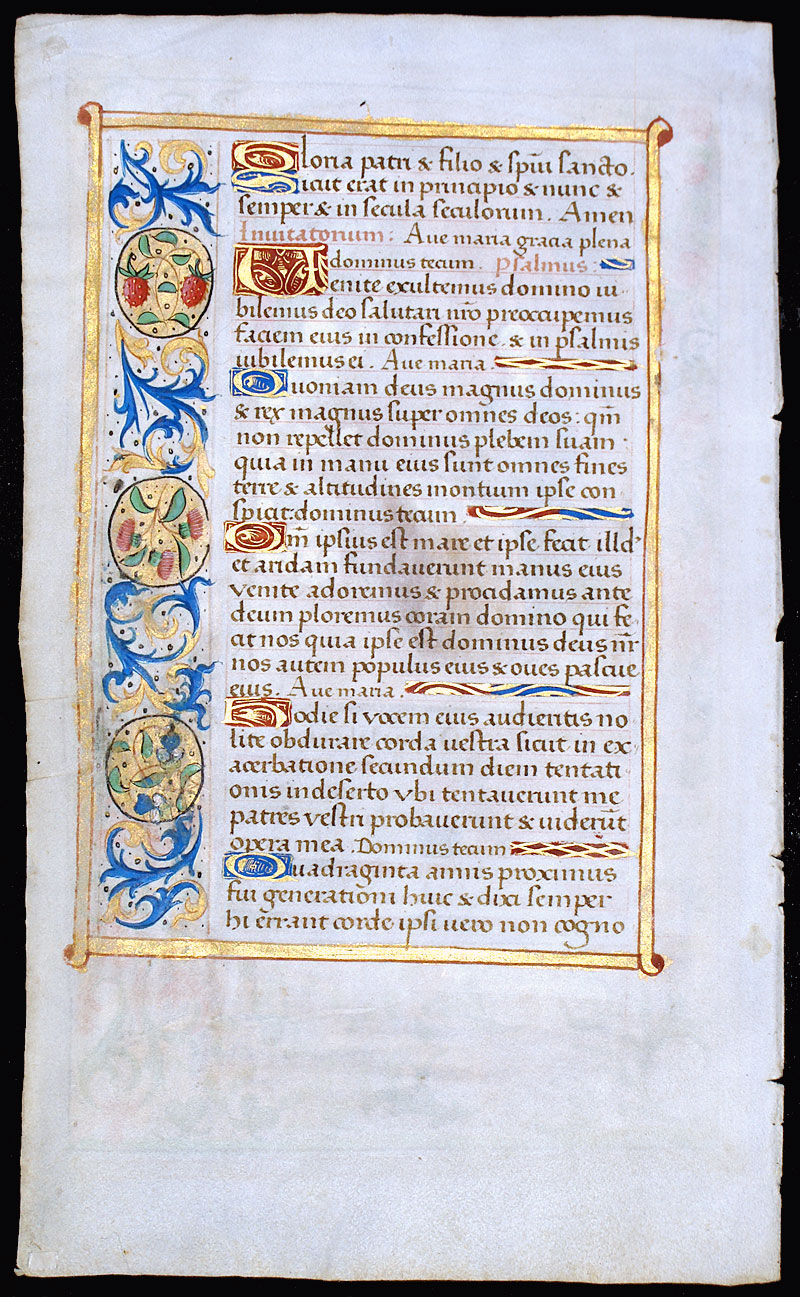 Gloria patri & filio & sp̄ui sancto.
Sicut erat in principio & nunc &
semper & in secula seculorum. Amen
Inuitatorum: Aue maria gracia plena
dominus tecum. Psalmus:
Uenite exultemus domino iu
bilemus deo salutari nr̄o preoccupemus
faciem eius in confessione & in psalmis
iubilemus ei. Aue maria.
Quoniam deus magnus dominus
& rex magnus super omnes deos: qm̄
non repellet dominus plebem suam
quia in manu eius sunt omnes fines
terre & altitudines montium ipse con
spicit. dominus tecum.
Qm̄ ipsius est mare et ipse fecit illd'
et aridam fundauerunt manus eius
venite adoremus & procidamus ante
deum ploremus coram domino qui fe
cit nos quia ipse est dominus deus nr̄
nos autem populus eius & oues pascue
eius. Aue maria.
Hodie si vocem eius audieritis no
lite obdurare corda uestra sicut in ex
acerbatione secundum diem tentati
onis in deserto vbi tentauerunt me
patres vestri probauerunt & uiderūt
opera mea. Dominus tecum
Quadraginta annis proximus
fui generationi huic & dixi semper
hi errant corde ipsi uero non cogno